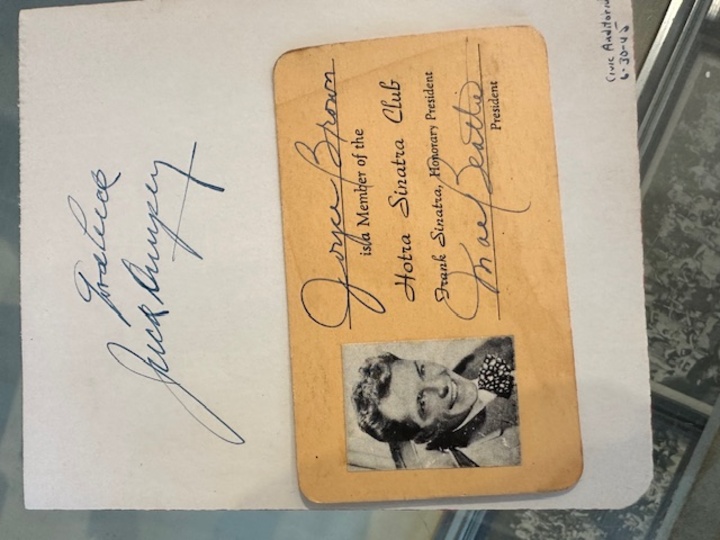 Good luck
Jack Dempsey
Joyce Brown
is a Member of the
Hotra Sinatra Club
Frank Sinatra, Honorary President
Mae Beattie
President
Civic
6-30-45